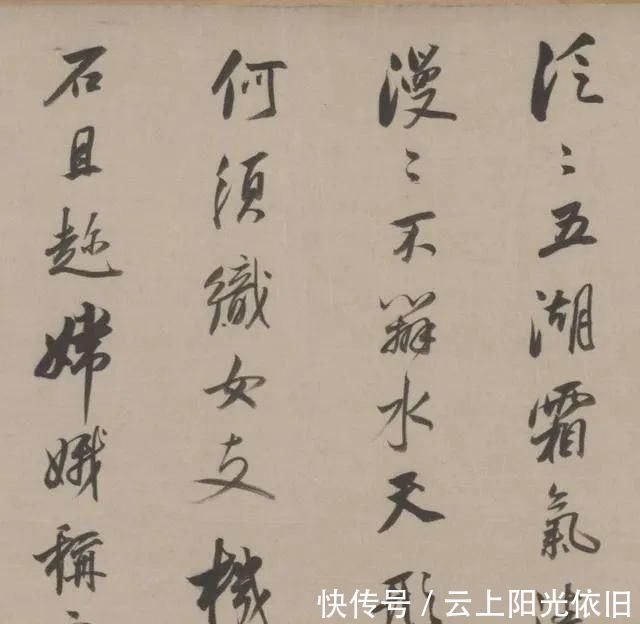 泛〻五湖霜氣
漫〻不辨水天形
何須織女支機
石且趂嫦娥稱
快传号/云上阳光依旧